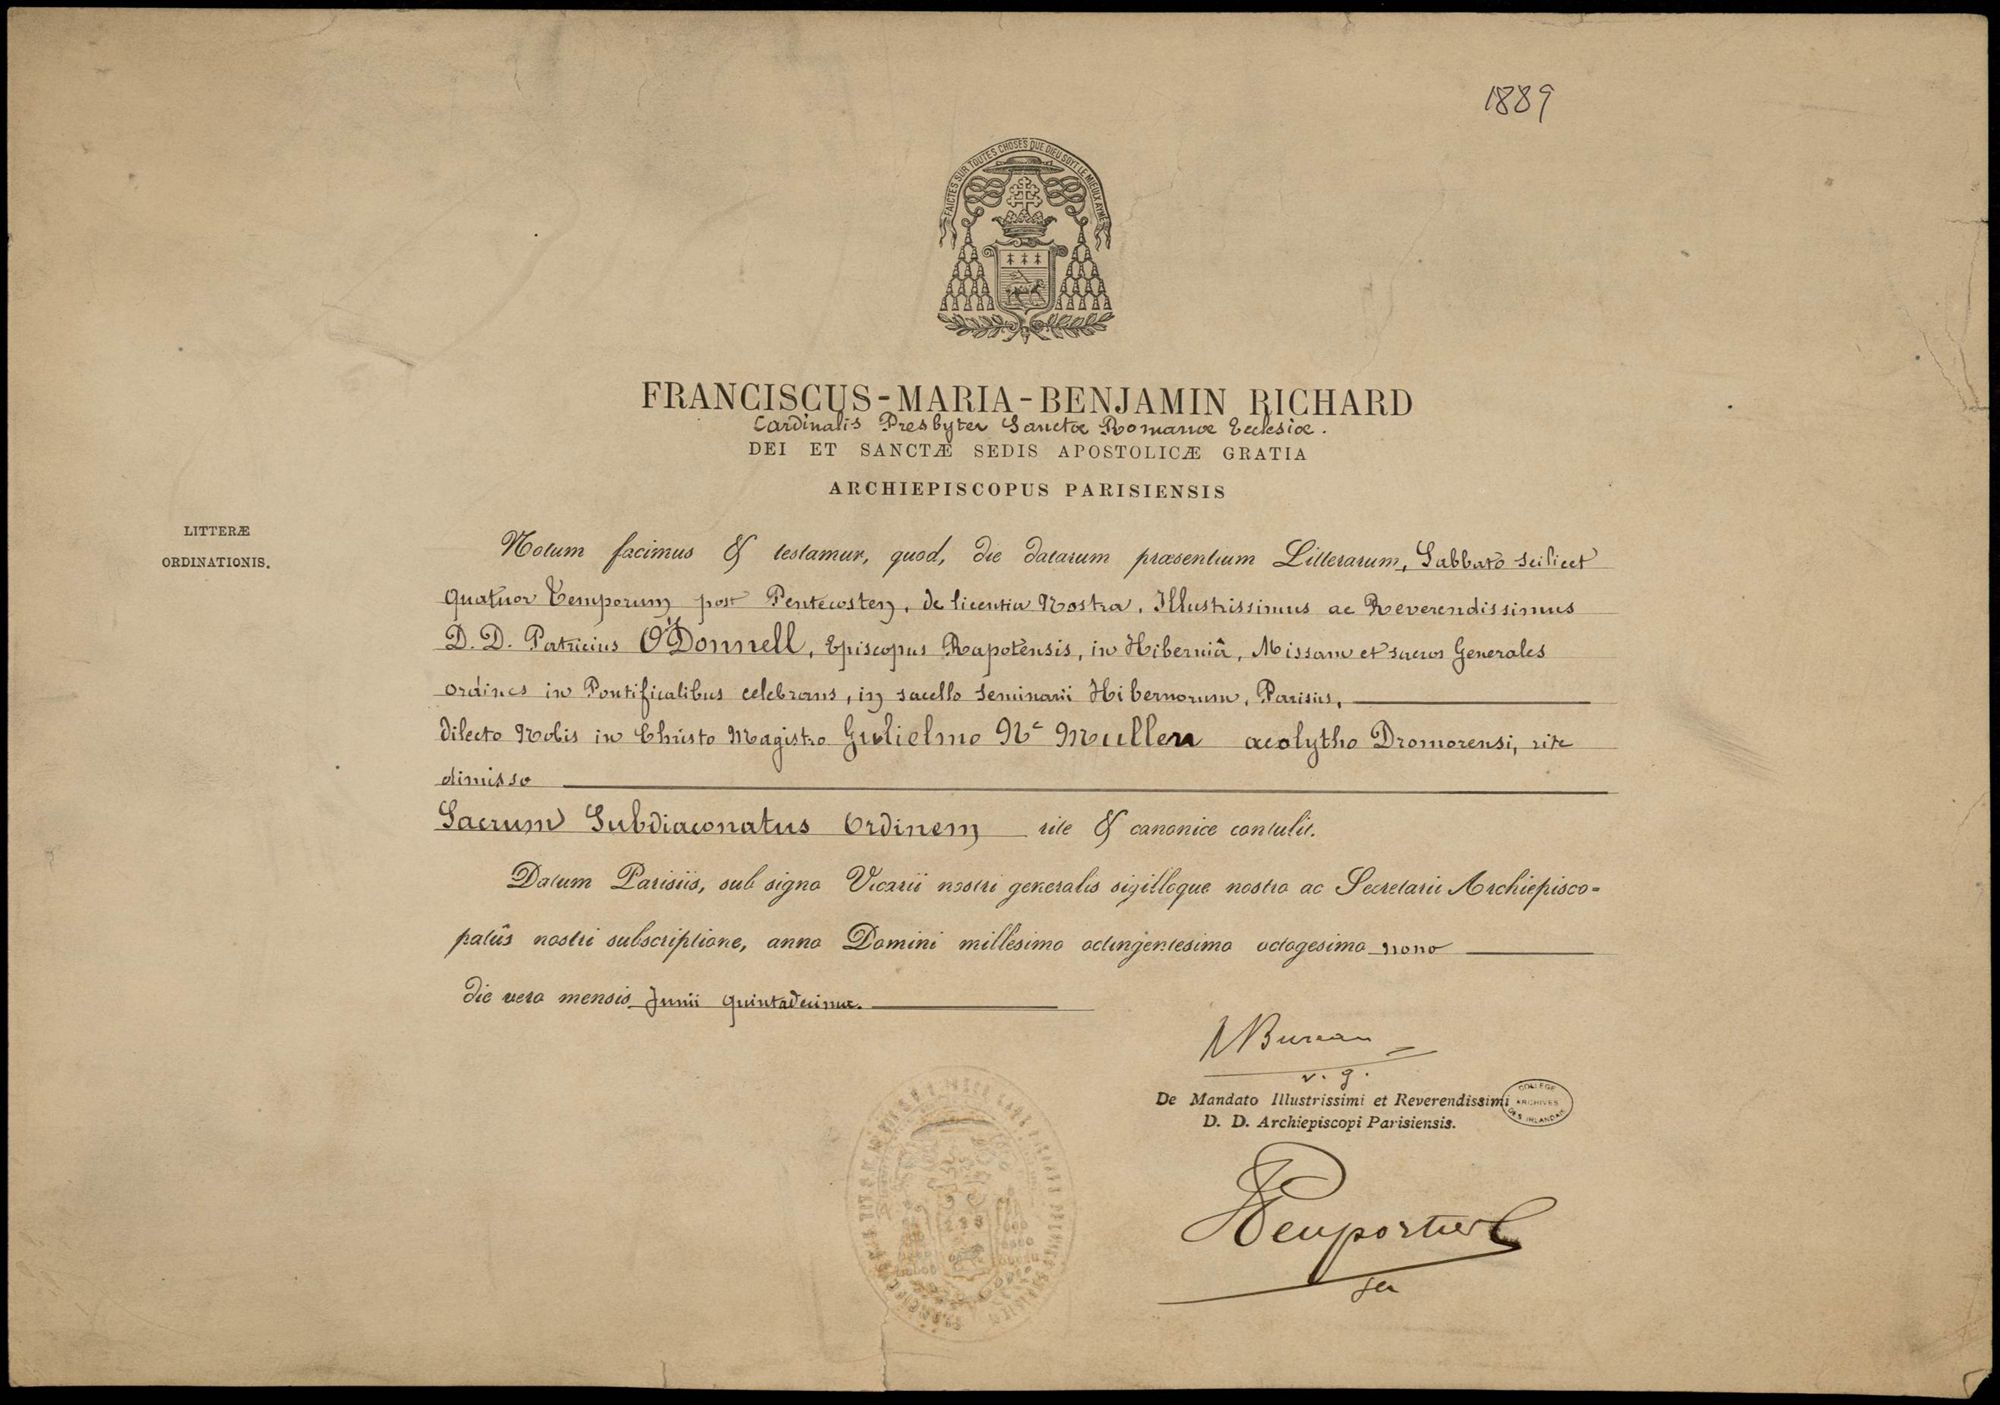 1889
FAICTES SUR TOUTES CHOSES QUE DIEU SOYT LE MIEULX AYMÉ
FRANCISCUS-MARIA-BENJAMIN RICHARD
Cardinalis Presbyter Sanctæ Romanæ Ecclesiæ.
DEI ET SANCTÆ SEDIS APOSTOLICÆ GRATIA
ARCHIEPISCOPUS PARISIENSIS
LITTERÆ
ORDINATIONIS.
Notum facimus & testamur, quod, die datarum præsentium Litterarum, Sabbato scilicet
Quatuor Temporum post Pentecosten, de licentia Nostra, Illustrissimus ac Reverendissimus
D. D. Patricius O'Donnell, Episcopus Rapotensis, in Hiberniâ, Missam et sacros Generales
ordines in Pontificalibus celebrans, in sacello Seminarii Hibernorum, Parisiis,
dilecto Nobis in Christo Magistro Gulielmo Mc Mullen acolytho Dromorensi, rite
dimisso
Sacrum Subdiaconatus Ordinem rite & canonice contulit.
Datum Parisiis, sub signo Vicarii nostri generalis sigilloque nostro ac Secretarii Archiepisco-
patûs nostri subscriptione, anno Domini millesimo octingentesimo octogesimo nono
die vero mensis Junii quintadecima.
Bureau
v. g.
De Mandato Illustrissimi et Reverendissimi
D. D. Archiepiscopi Parisiensis.
COLLEGE
ARCHIVES
DES IRLANDAIS
Peuportier